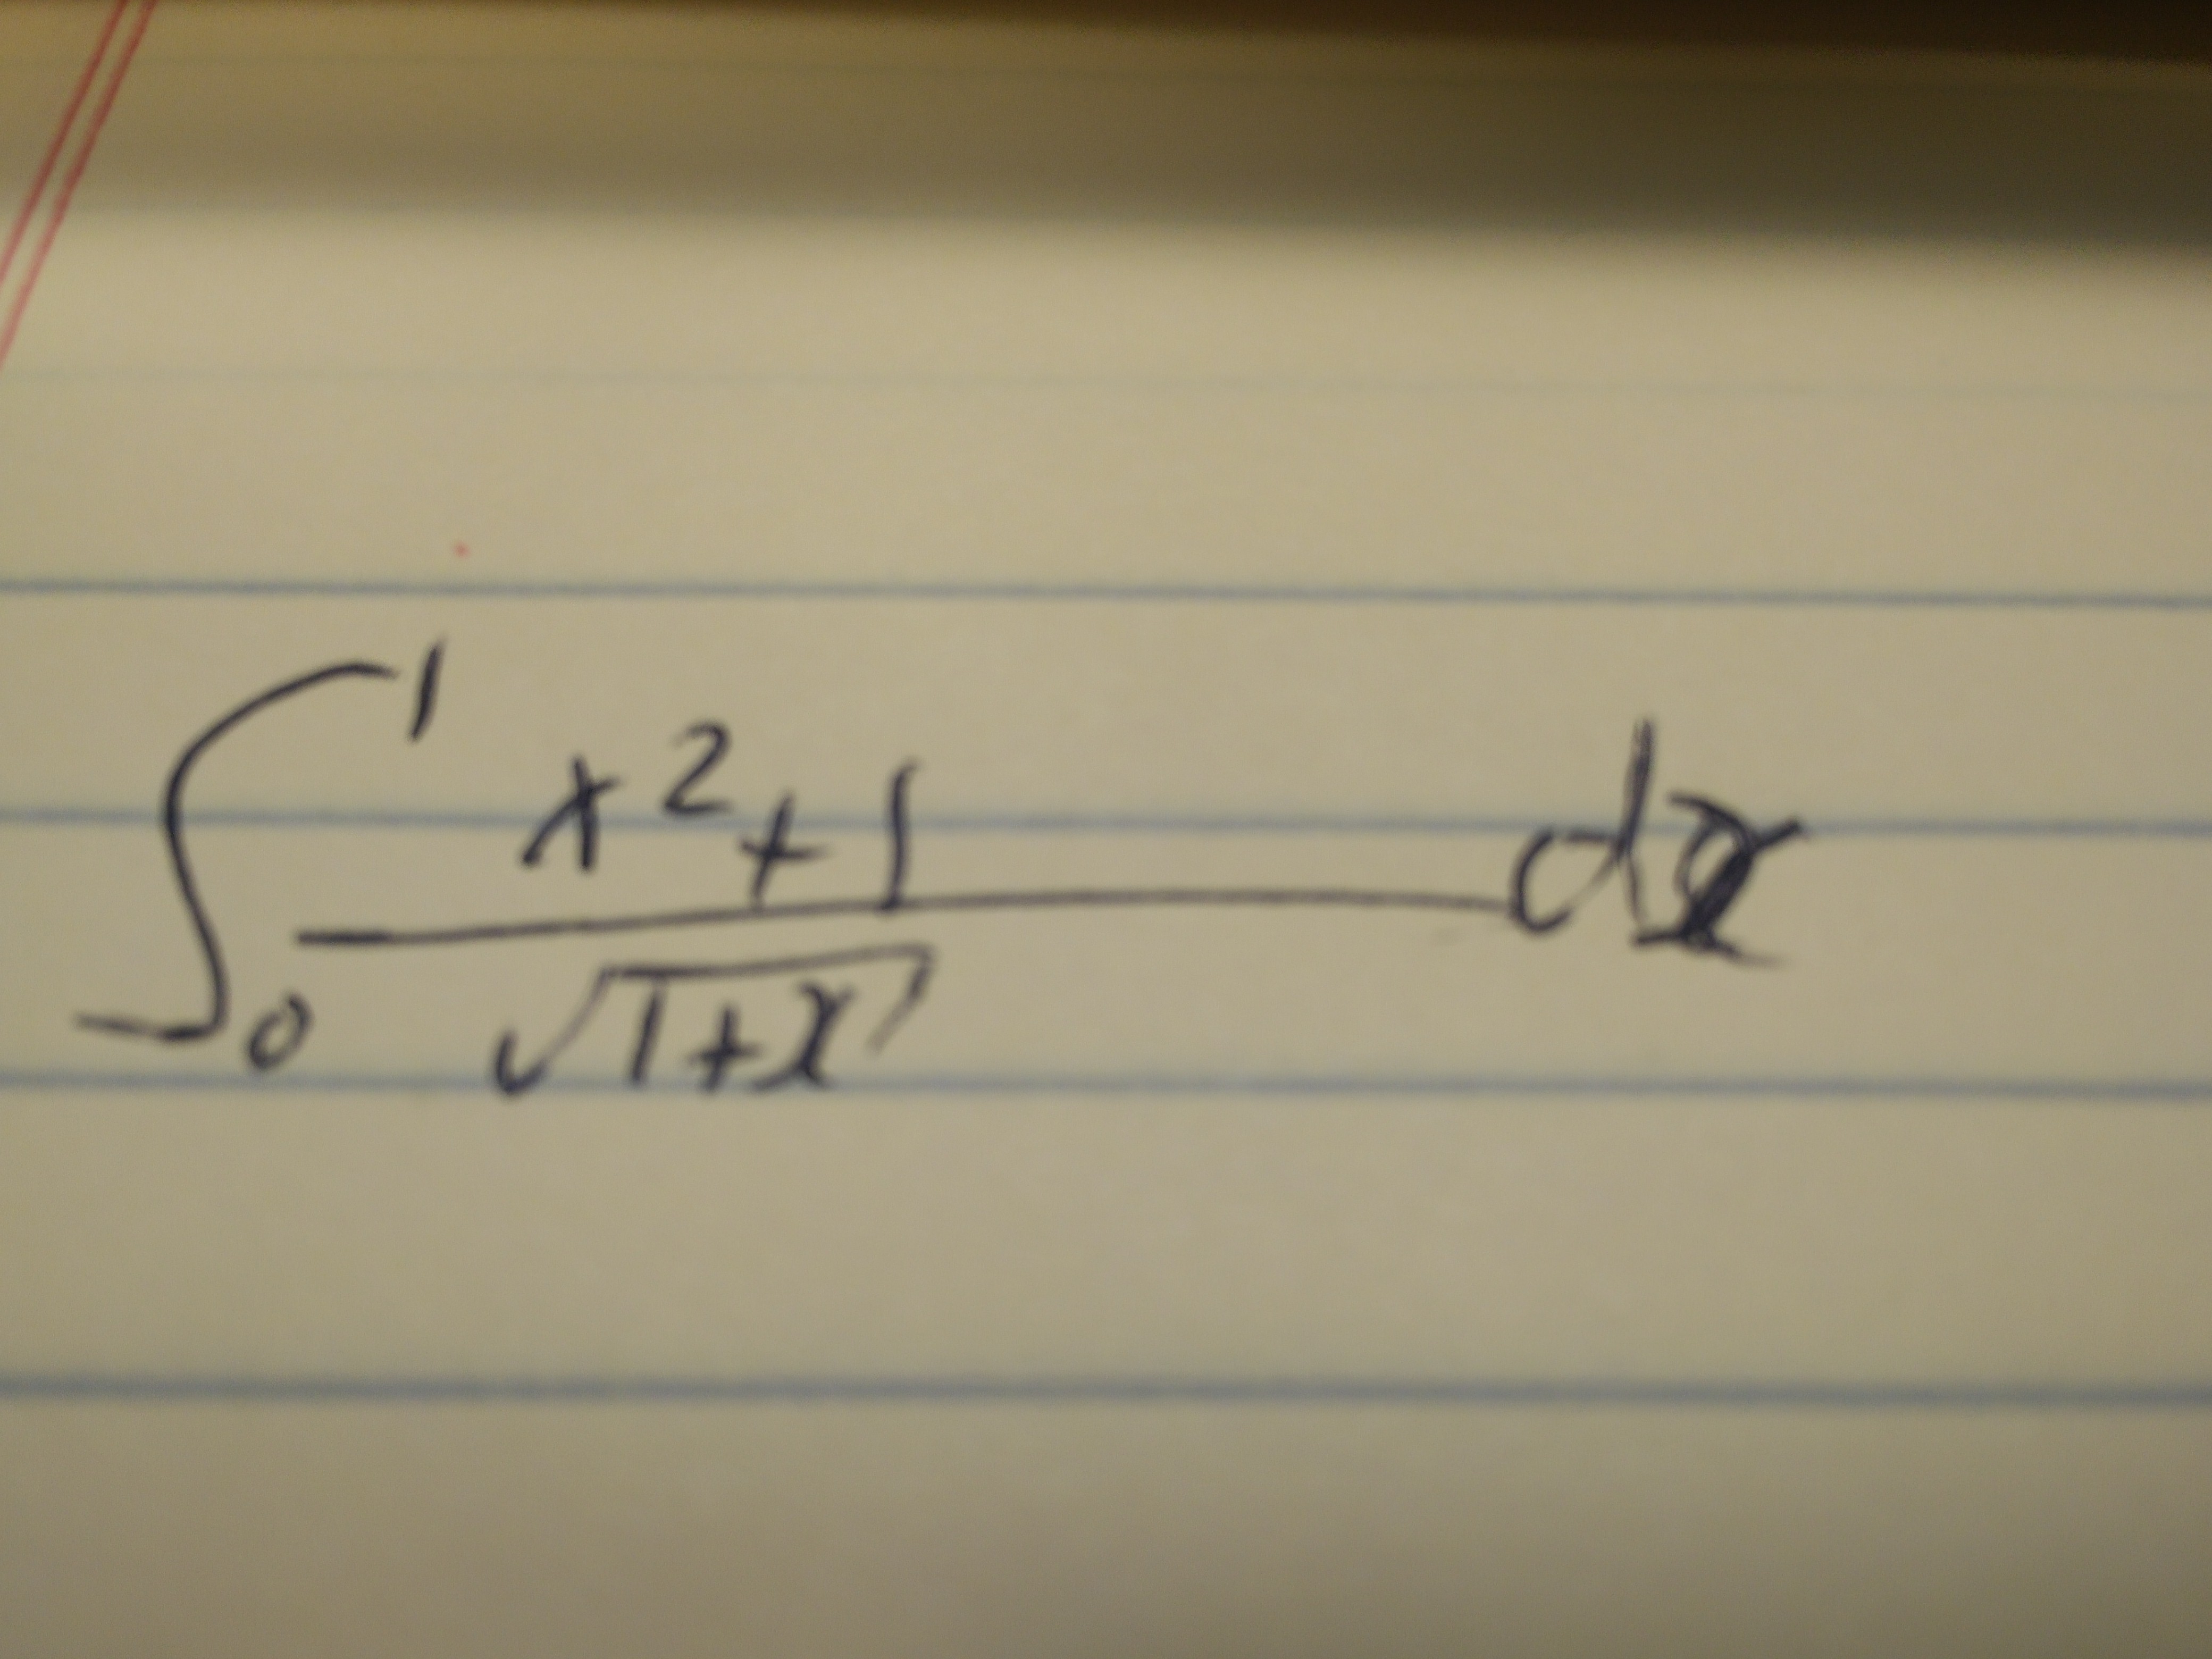 ∫₀¹ (x²+1)/√(1+x) dx